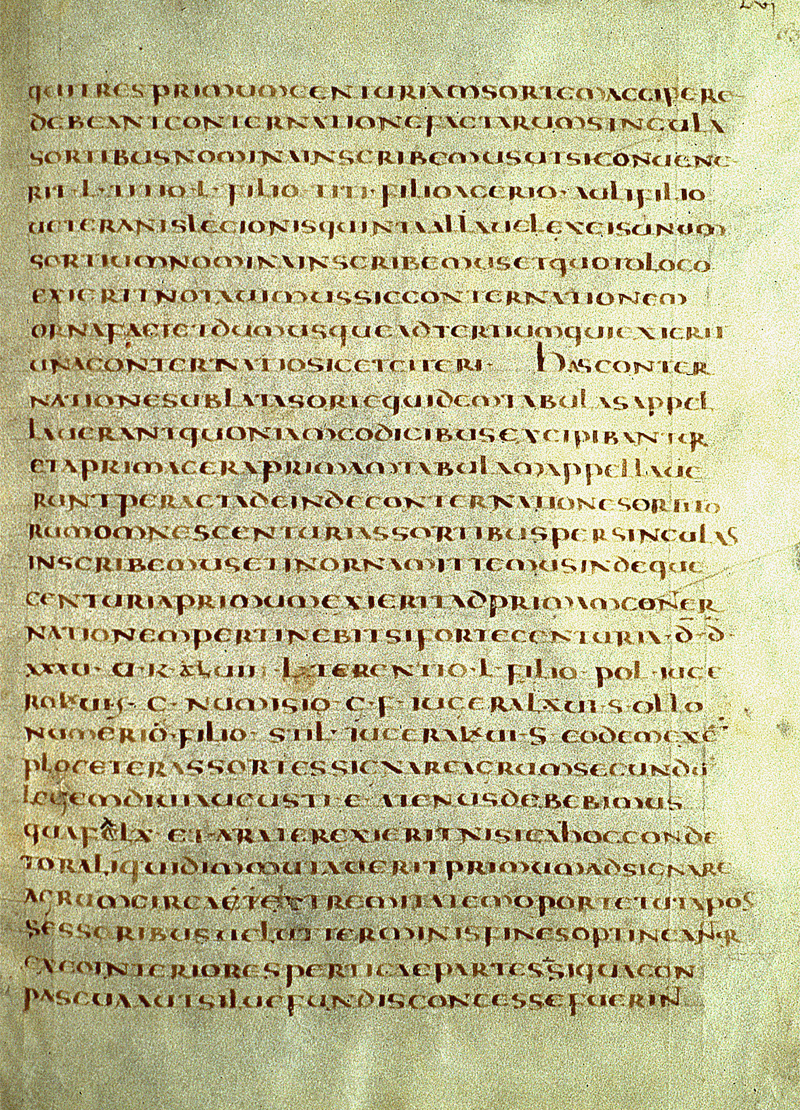 quitresprimumcenturiamsortemaccipere
debeantconternationefactarumsingula
sortibusnominainscribemusutsiconuene
rit·L·titio·L·filio·titi·filioacerio·auli filio
ueteranislegionisquintaallauelexeisunum
sortiumnominainscribemusetquotoloco
exieritnotauimussicconternationem
ornafaetetdumusqueadtertiumquiexierit
unaconternatiosicetceteri· hasconter
nationesublatasortequidemtabulasappel
lauerantquoniamcodicibusexcipibantur
etaprimaceraprimamtabulamappellaue
runtperactadeindeconternationesortitio
rumomnescenturiassortibuspersingulas
inscribemusetinornamittemusindeque
centuriaprimumexieritadprimamconer
nationempertinebitsifortecenturia·d̄·d̄·
xxxu·u·k· L·terentio·L·filio·pol·iuge
c·numisio·c·f·iugeralxui·s·ollo
numerio·filio·stil·iugera ·s·eodemexē
ploceterassortessicnareagrumsecundū
legemdiuiaugusti·e·atenusdebebimus
quafalx·et·araterexieritnisieahoccondi
toraliquidimmutaueritprimumadsignare
agrumcircaetextremitatemoportetutapos
sessoribusueluttterminisfinesoptineantur
exeointeriorespertigaepartessiquacon
pascuaautsiluefundisconcessefuerin